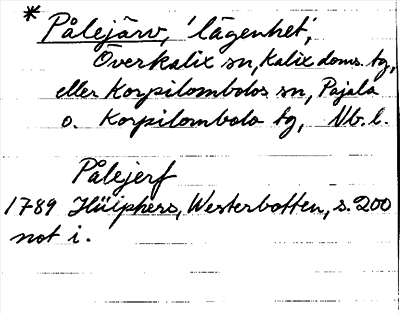 * Pålejärv, 'lägenhet',
Överkalix sn, Kalix doms. tg,
eller Korpilombolos sn, Pajala
o. Korpilombolo tg, Nb. l.
Pålejerf
1789 Hüiphers, Westerbotten, s. 200
not i.